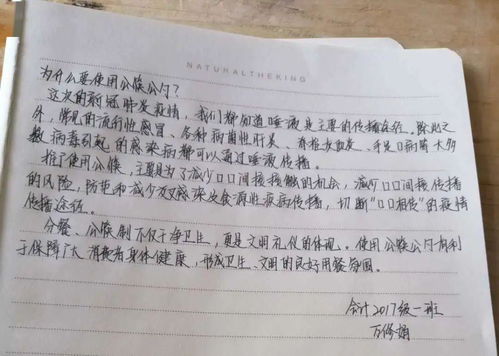 NATURALTHEKING
为什么要使用公筷公勺?
这次的新冠肺炎疫情,我们都知道唾液是主要的传播途径。除此之
外,常见的流行性感冒、各种病菌性肝炎、脊椎灰血发、手足口病等大多
数病毒引起的感染病都可以通过唾液传播。
推广使用公筷,主要是为了减少口口间接接触的机会,减少口口间接传播
的风险,防范和减少交叉感染及食源性疾病传播,切断“口口相传”的疫情
传播途径。
分餐、公筷制不仅干净卫生,更是文明礼仪的体现。使用公筷公勺有利
于保障广大消费者身体健康,形成卫生、文明的良好用餐氛围。
会计2017级一班
万修娟